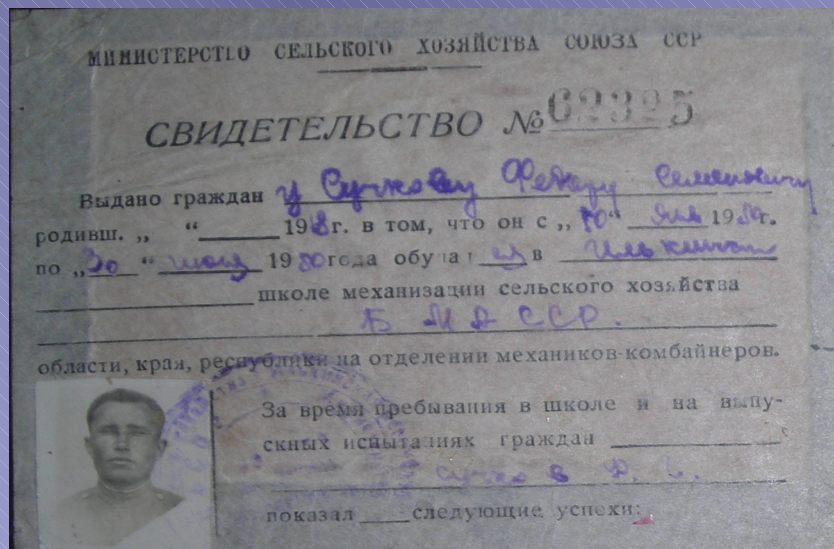 МИНИСТЕРСТВО СЕЛЬСКОГО ХОЗЯЙСТВА СОЮЗА ССР
СВИДЕТЕЛЬСТВО № 62325
Выдано граждан у Сучкову Федору Семеновичу
родивш. „ “ 1918г. в том, что он с „10“ янв 1950г.
по „30“ июня 1950года обучался в
школе механизации сельского хозяйства
Б М А ССР.
области, края, республики на отделении механиков-комбайнеров.
За время пребывания в школе и на выпу-
скных испытаниях граждан
Сучков Ф. С.
показал следующие успехи: